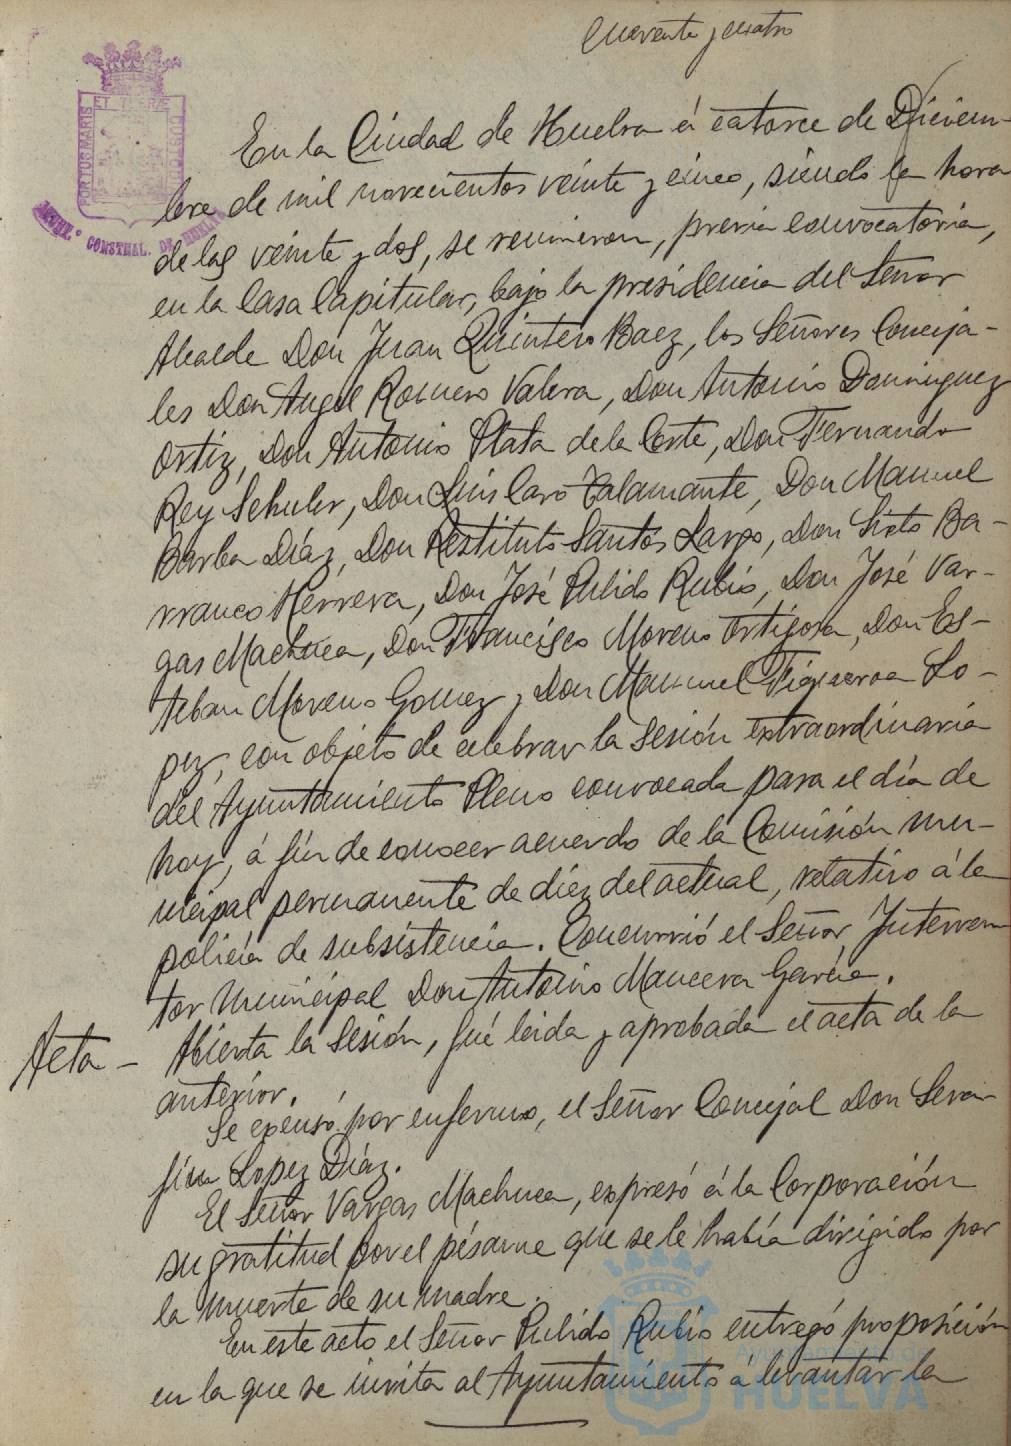 Cuarenta y cuatro
PORTUS MARIS ET TERRÆ CUSTODIA
AYUNT.º CONSTNAL. DE HUELVA
En la Ciudad de Huelva á catorce de Diciem-
bre de mil novecientos veinte y cinco, siendo la hora
de las veinte y dos, se reunieron, previa convocatoria,
en la Casa Capitular, bajo la presidencia del Señor
Alcalde Don Juan Quintero Baez, los Señores Conceja-
les Don Angel Romero Valera, Don Antonio Dominguez
Ortiz, Don Antonio Plata de la Corte, Don Fernando
Rey Schuler, Don Luis Caro Talamante, Don Manuel
Barba Díaz, Don Restituto Santos Largo, Don Sixto Ba-
rranco Herrera, Don José Pulido Rubio, Don José Var-
gas Machuca, Don Francisco Moreno Ortigosa, Don Es-
teban Moreno Gomez y Don Manuel Figueroa Lo-
pez, con objeto de celebrar la sesión extraordinaria
del Ayuntamiento Pleno convocada para el día de
hoy, á fin de conocer acuerdo de la Comisión mu-
nicipal permanente de diez del actual, relativo á la
policía de subsistencia. Concurrió el Señor Interven
tor Municipal Don Antonio Mancera García.
Acta - Abierta la sesión, fué leida y aprobada el acta de la
anterior.
Se excusó por enfermo, el Señor Concejal Don Sera-
fin Lopez Díaz.
El Señor Vargas Machuca, expresó á la Corporación
su gratitud por el pésame que se le había dirigido por
la muerte de su madre.
En este acto el Señor Pulido Rubio entregó proposición
en la que se invita al Ayuntamiento á levantar la
Ayuntamiento de
HUELVA